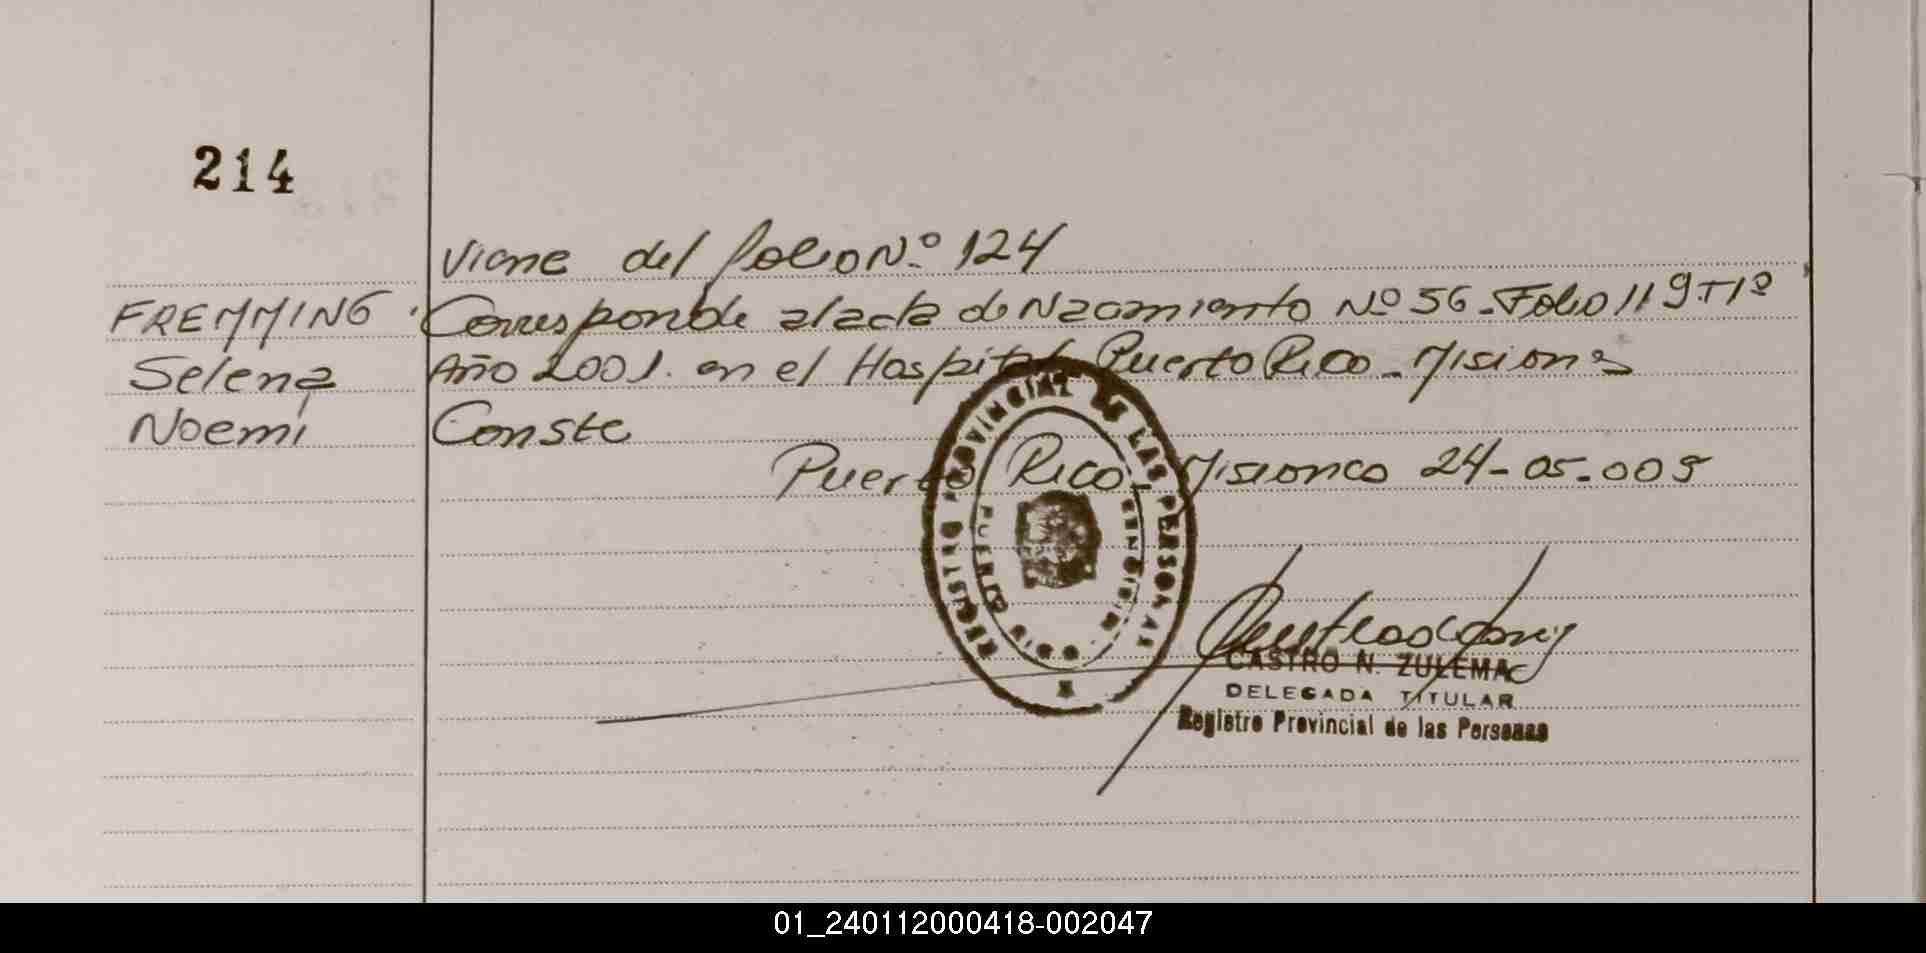 214
Viene del folio Nº 124
FREMMING Corresponde al acta de Nacimiento Nº 56 - Folio 119 Tº 1º
Selena Año 2001. en el Hospital Puerto Rico - Misiones
Noemí Conste
Puerto Rico, Misiones 24-05-009
REGISTRO PROVINCIAL DE LAS PERSONAS
PUERTO RICO
CASTRO N. ZULEMA
DELEGADA TITULAR
Registro Provincial de las Personas
01_240112000418-002047